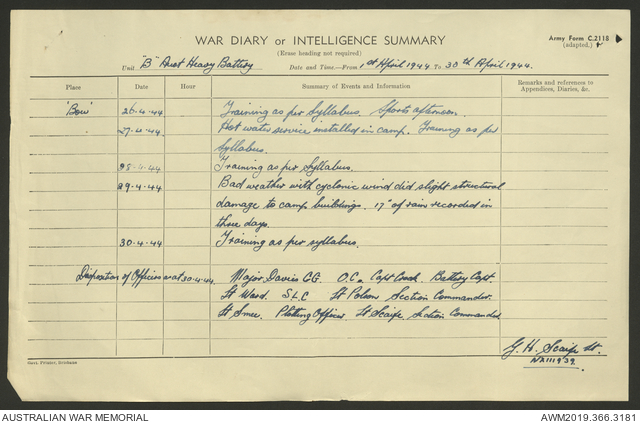 WAR DIARY or INTELLIGENCE SUMMARY
Army Form C.2118
(Erase heading not required)
(adapted.)
Unit "B" Aust Heavy Battery Date and Time.—From 1st April 1944 To 30th April 1944.
Place Date Hour Summary of Events and Information Remarks and references to
Appendices, Diaries, &c.
'Bow' 26.4.44 Training as per Syllabus. Sports afternoon.
27.4.44 Hot water service installed in camp. Training as per
Syllabus.
28.4.44 Training as per Syllabus.
29.4.44 Bad weather with cyclonic wind did slight structural
damage to camp buildings. 17" of rain recorded in
three days.
30.4.44 Training as per syllabus.
Disposition of Officers as at 30.4.44. Major Davies C.G. O.C. Capt Cook. Battery Capt.
Lt Ward. S.L.C Lt Polson Section Commander.
Lt Smee. Plotting Officer Lt Scaife. Section Commander
G. H. Scaife Lt.
Govt. Printer, Brisbane
AUSTRALIAN WAR MEMORIAL
AWM2019.366.3181